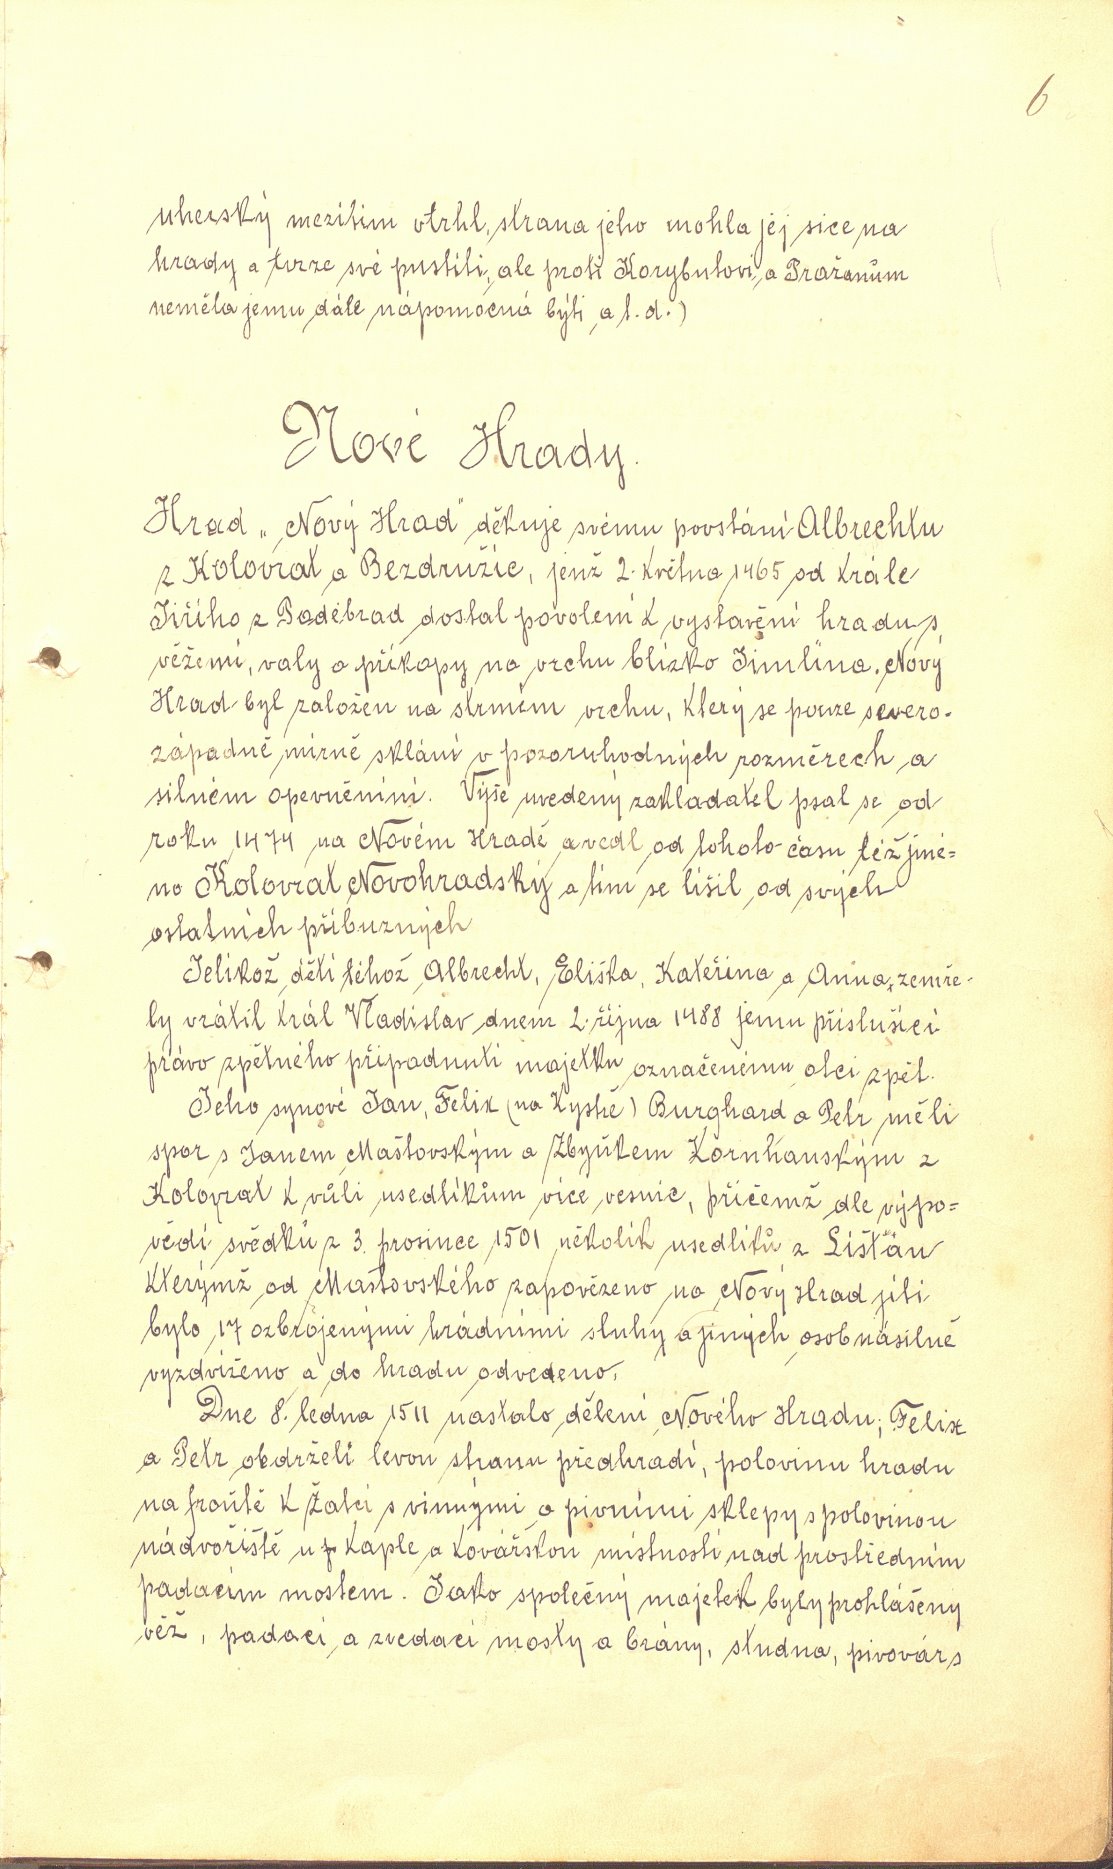 6
uherský mezitím vtrhl, strana jeho mohla jej sice na
hrady a tvrze své pustiti, ale proti Korybutovi a Pražanům
neměla jemu dále nápomocná býti a t. d.)
Nové Hrady.
Hrad „Nový Hrad" děkuje svému povstání Albrechtu
z Kolovrat a Bezdružic, jenž 2. května 1465 od krále
Jiřího z Poděbrad dostal povolení k vystavění hradu s
věžemi, valy a příkopy na vrchu blízko Jimlína. Nový
Hrad byl založen na strmém vrchu, který se pouze severo-
západně mírně sklání v pozoruhodných rozměrech a
silném opevněním. Výše uvedený zakladatel psal se od
roku 1474 na Novém Hradě a vedl od tohoto času též jmé=
no Kolovrat Novohradský a tím se lišil od svých
ostatních příbuzných
Jelikož děti téhož Albrecht, Eliška, Kateřina a Anna, zemře-
ly vrátil král Vladislav dnem 2. října 1488 jemu příslušící
právo zpětného připadnutí majetku označenému otci zpět.
Jeho synové Jan, Felix (na Kyshě) Burghard a Petr měli
spor s Janem Maštovským a Zbyňkem Kornhauským z
Kolovrat k vůli usedlíkům více vesnic, přičemž dle výpo=
vědí svědků z 3. prosince 1501 několik usedlíků z Lišťan
kterýmž od Maštovského zapovězeno na Nový Hrad jíti
bylo 17 ozbrojenými hrádními sluhy a jiných osob násilně
vyzdviženo a do hradu odvedeno.
Dne 8. ledna 1511 nastalo dělení Nového Hradu; Felix
a Petr obdrželi levou stranu předhradí, polovinu hradu
na frontě k Žatci s vinnými a pivními sklepy s polovinou
nádvoříště u kaple a kovářskou místností nad prostředním
padacím mostem. Jako společný majetek byly prohlášeny
věž, padací a zvedací mosty a brány, studna, pivovár s